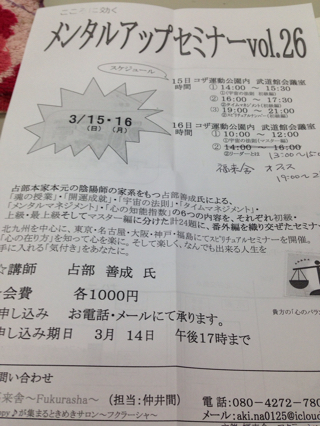 こころに効く
メンタルアップセミナーvol.26
スケジュール
3/15・16
(日) (月)
15日 コザ運動公園内 武道館会議室
時間 ① 14:00 ~ 15:30
② 16:00 ~ 17:30
③ 19:00 ~ 21:00
16日 コザ運動公園内 武道館会議室
時間 ① 10:00 ~ 12:00
② 14:00 ~ 16:00
13:00~15:00
占部本家本元の陰陽師の家系をもつ占部善成氏による、
「魂の授業」・「開運成就」・「宇宙の法則」・「タイムマネジメント」・
「メンタルマネジメント」・「心の知能指数」の6つの内容を、それぞれ初級・
上級・最上級そしてマスター編に分けた計24題に、番外編を織り交ぜたセミナー
北九州を中心に、東京・名古屋・大阪・神戸・福島にてスピリチュアルセミナーを開催。
「心の在り方」を知って心を楽に。そして楽しく、なんでも出来る人生を
手に入れる「気付き」をあなたに。
☆講師 占部 善成 氏
会費 各1000円
申し込み お電話・メールにて承ります。
申し込み期日 3月14日 午後17時まで
貴方の「心のバラン
問い合わせ
来舎~Fukurasha~ (担当:仲井間) 電話:080-4272-780
ppy♪が集まるときめきサロン~フクラーシャ~ メール:aki.na0125@iclou